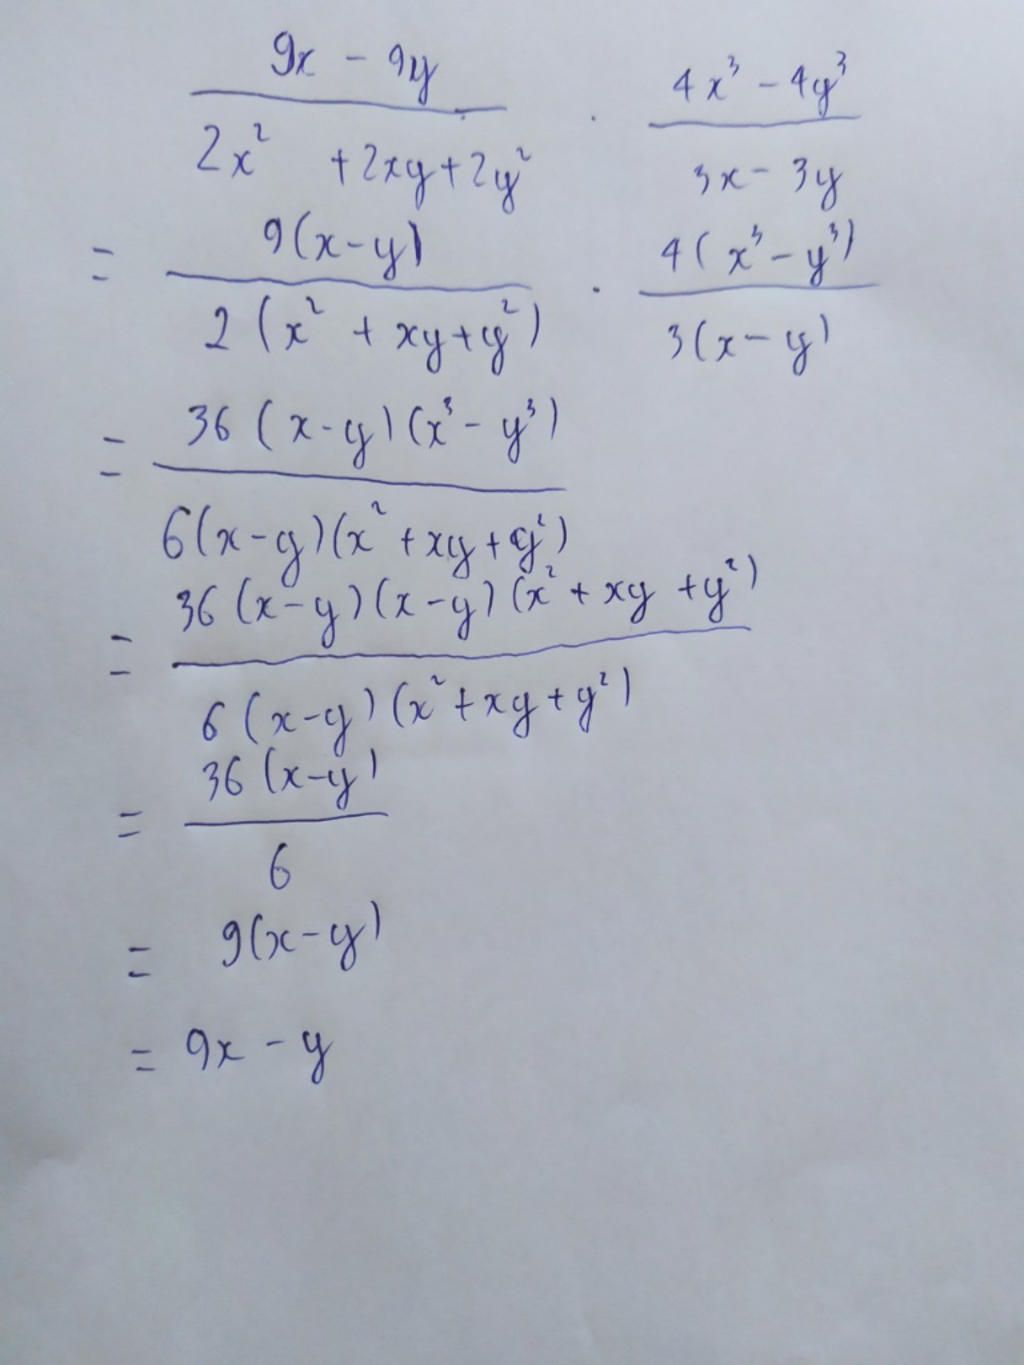 9x - 9y / 2x² + 2xy + 2y² · 4x³ - 4y³ / 3x - 3y
= 9(x-y) / 2(x² + xy + y²) · 4(x³ - y³) / 3(x - y)
= 36(x-y)(x³ - y³) / 6(x-y)(x² + xy + y²)
= 36(x-y)(x-y)(x² + xy + y²) / 6(x-y)(x² + xy + y²)
= 36(x-y) / 6
= 9(x-y)
= 9x - y